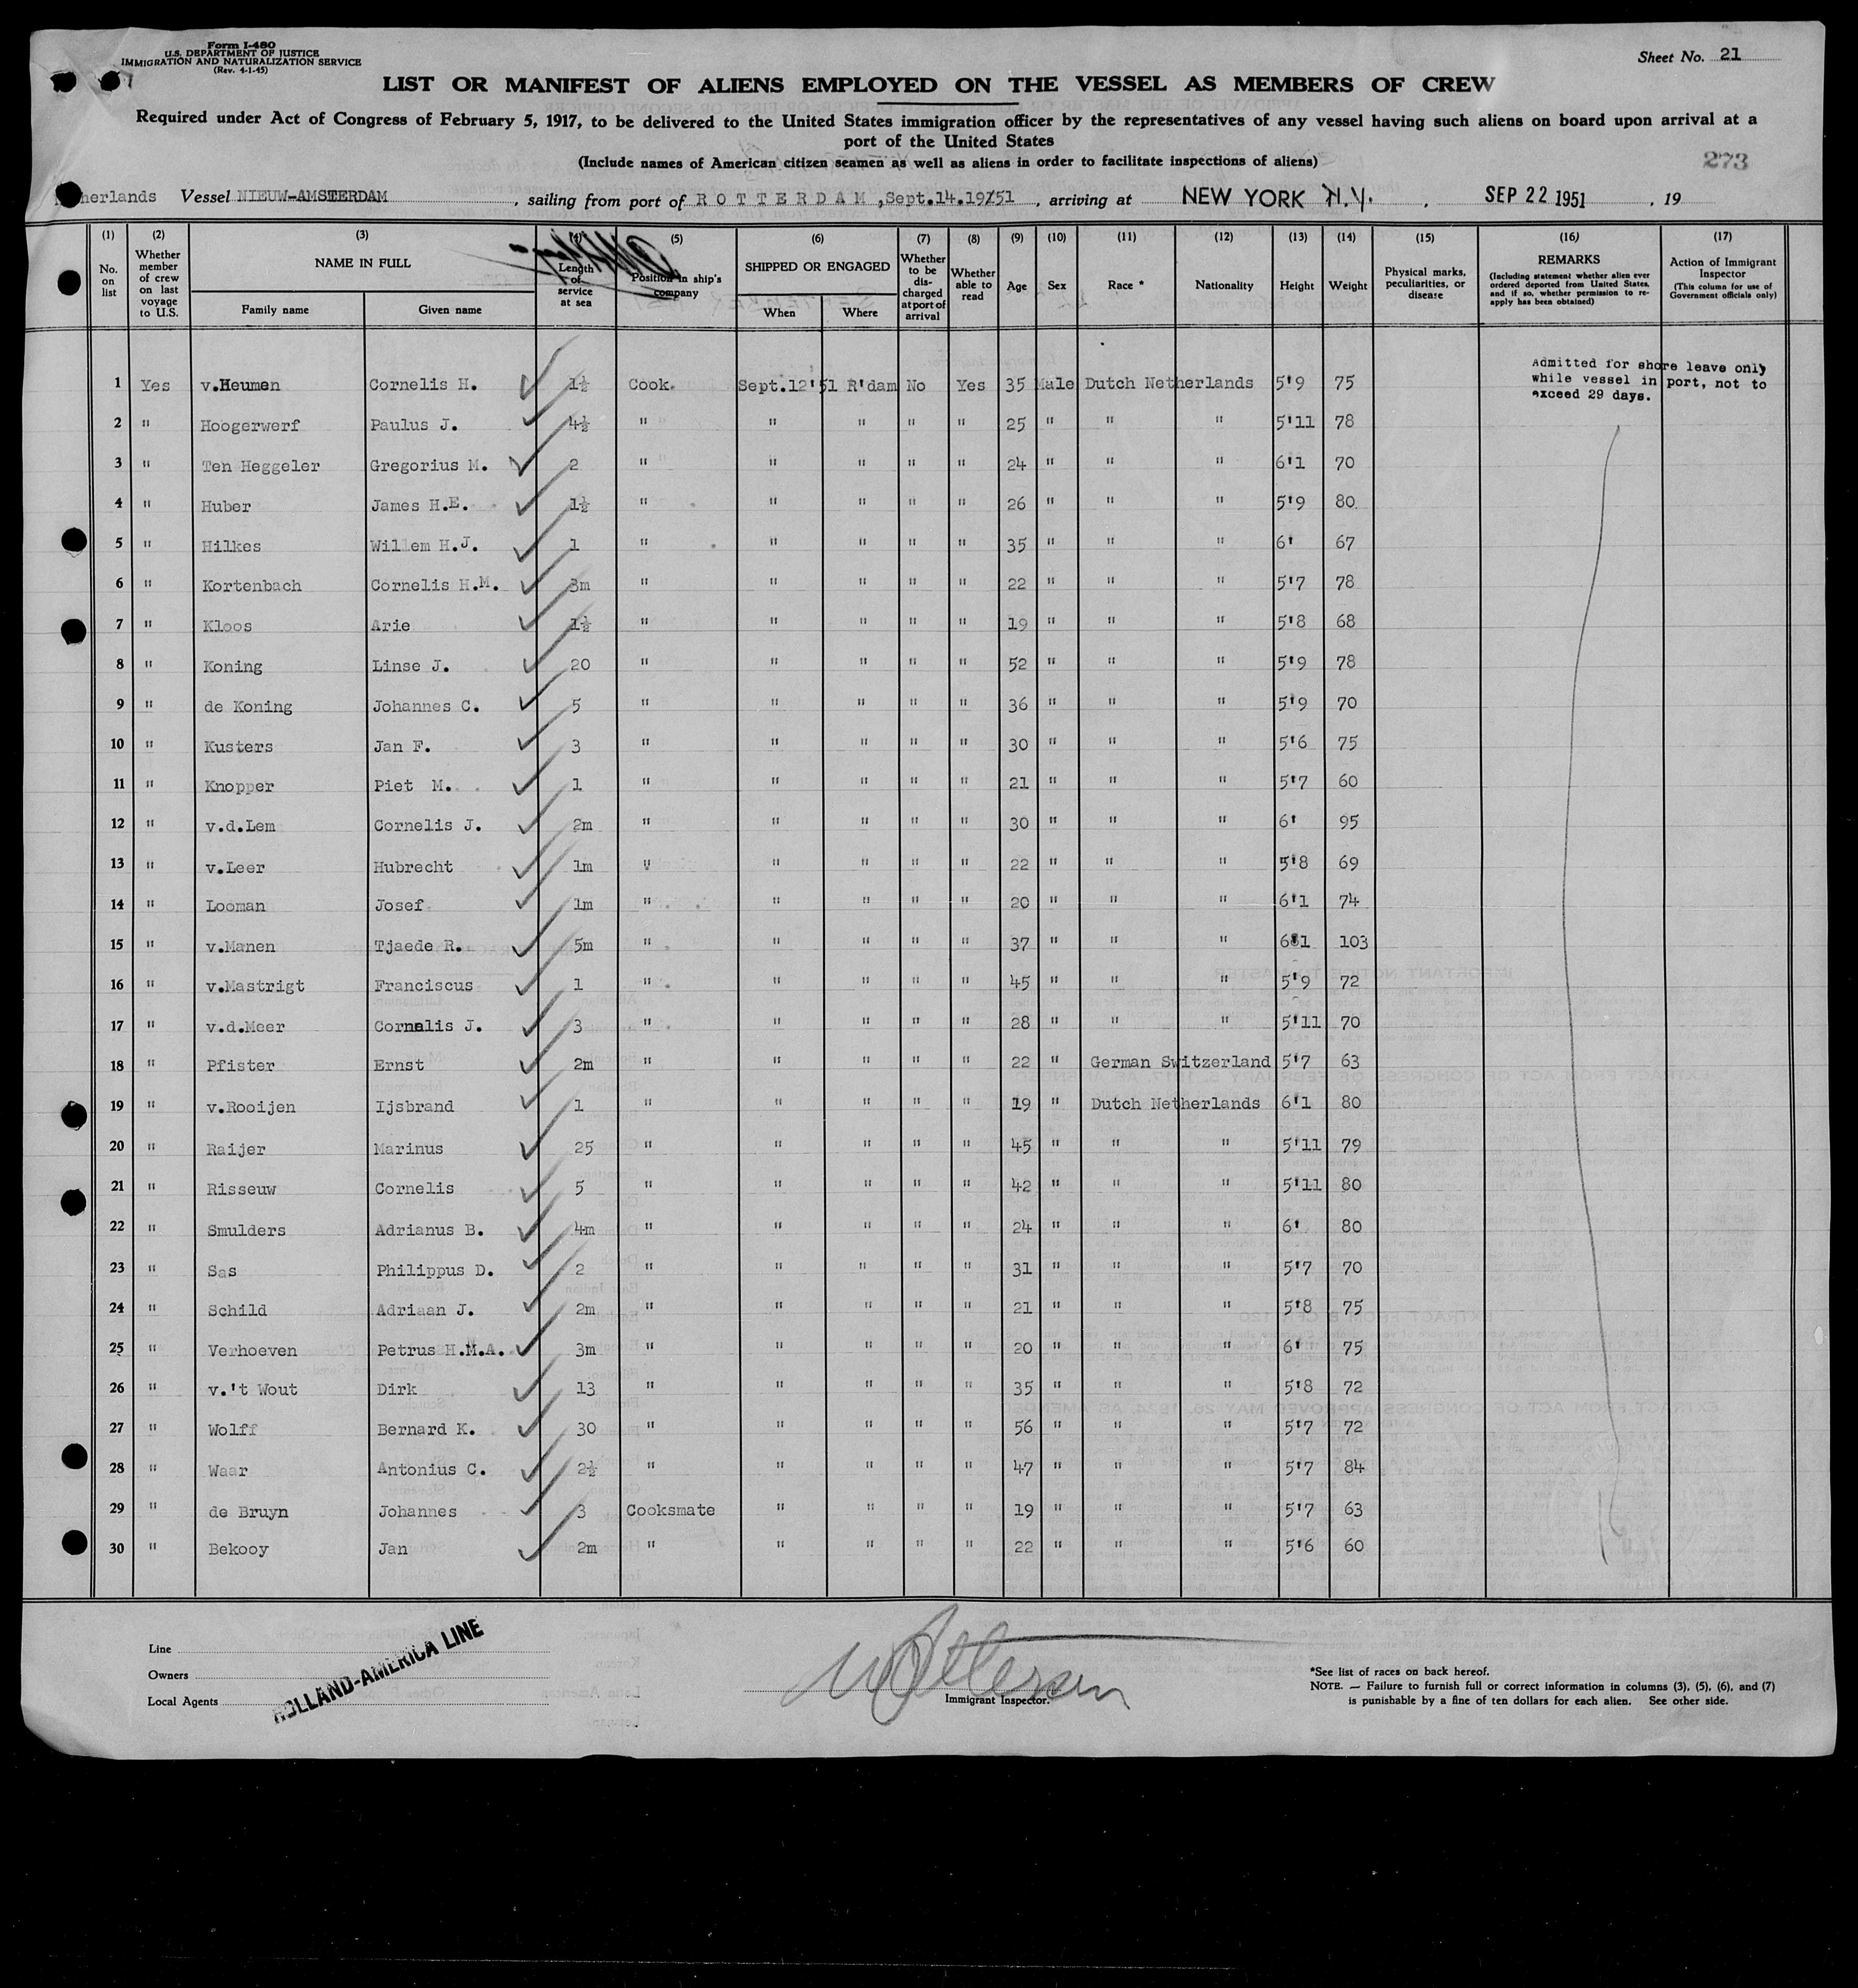 Form I-480
U.S. DEPARTMENT OF JUSTICE
IMMIGRATION AND NATURALIZATION SERVICE
(Rev. 4-1-45)
Sheet No. 21
LIST OR MANIFEST OF ALIENS EMPLOYED ON THE VESSEL AS MEMBERS OF CREW
Required under Act of Congress of February 5, 1917, to be delivered to the United States immigration officer by the representatives of any vessel having such aliens on board upon arrival at a
port of the United States
(Include names of American citizen seamen as well as aliens in order to facilitate inspections of aliens)
273
herlands Vessel NIEUW-AMSTERDAM, sailing from port of ROTTERDAM, Sept.14.1951, arriving at NEW YORK N.Y., SEP 22 1951, 19
(1) (2) (3) (4) (5) (6) (7) (8) (9) (10) (11) (12) (13) (14) (15) (16) (17)
No. on list Whether member of crew on last voyage to U.S. NAME IN FULL Family name Given name Length of service at sea Position in ship's company SHIPPED OR ENGAGED When Where Whether to be discharged at port of arrival Whether able to read Age Sex Race * Nationality Height Weight Physical marks, peculiarities, or disease REMARKS (Including statement whether alien ever ordered deported from United States, and if so, whether permission to re-apply has been obtained) Action of Immigrant Inspector (This column for use of Government officials only)
Admitted for shore leave only
while vessel in port, not to
exceed 29 days.
1 Yes v.Heumen Cornelis H. 1½ Cook. Sept.12'51 R'dam No Yes 35 Male Dutch Netherlands 5'9 75
2 " Hoogerwerf Paulus J. 4½ " " " " " 25 " " " 5'11 78
3 " Ten Heggeler Gregorius M. 2 " " " " " 24 " " " 6'1 70
4 " Huber James H.E. 1½ " " " " " 26 " " " 5'9 80
5 " Hilkes Willem H.J. 1 " " " " " 35 " " " 6' 67
6 " Kortenbach Cornelis H.M. 3m " " " " " 22 " " " 5'7 78
7 " Kloos Arie 1½ " " " " " 19 " " " 5'8 68
8 " Koning Linse J. 20 " " " " " 52 " " " 5'9 78
9 " de Koning Johannes C. 5 " " " " " 36 " " " 5'9 70
10 " Kusters Jan F. 3 " " " " " 30 " " " 5'6 75
11 " Knopper Piet M. 1 " " " " " 21 " " " 5'7 60
12 " v.d.Lem Cornelis J. 2m " " " " " 30 " " " 6' 95
13 " v.Leer Hubrecht 1m " " " " " 22 " " " 5'8 69
14 " Looman Josef 1m " " " " " 20 " " " 6'1 74
15 " v.Manen Tjaede R. 5m " " " " " 37 " " " 6'1 103
16 " v.Mastrigt Franciscus 1 " " " " " 45 " " " 5'9 72
17 " v.d.Meer Cornelis J. 3 " " " " " 28 " " " 5'11 70
18 " Pfister Ernst 2m " " " " " 22 " German Switzerland 5'7 63
19 " v.Rooijen Ijsbrand 1 " " " " " 19 " Dutch Netherlands 6'1 80
20 " Raijer Marinus 25 " " " " " 45 " " " 5'11 79
21 " Risseuw Cornelis 5 " " " " " 42 " " " 5'11 80
22 " Smulders Adrianus B. 4m " " " " " 24 " " " 6' 80
23 " Sas Philippus D. 2 " " " " " 31 " " " 5'7 70
24 " Schild Adriaan J. 2m " " " " " 21 " " " 5'8 75
25 " Verhoeven Petrus H.M.A. 3m " " " " " 20 " " " 6' 75
26 " v.'t Wout Dirk 13 " " " " " 35 " " " 5'8 72
27 " Wolff Bernard K. 30 " " " " " 56 " " " 5'7 72
28 " Waar Antonius C. 2½ " " " " " 47 " " " 5'7 84
29 " de Bruyn Johannes 3 Cooksmate " " " " 19 " " " 5'7 63
30 " Bekooy Jan 2m " " " " " 22 " " " 5'6 60
Line
Owners
Local Agents
HOLLAND-AMERICA LINE
Immigrant Inspector.
*See list of races on back hereof.
NOTE. — Failure to furnish full or correct information in columns (3), (5), (6), and (7)
is punishable by a fine of ten dollars for each alien. See other side.